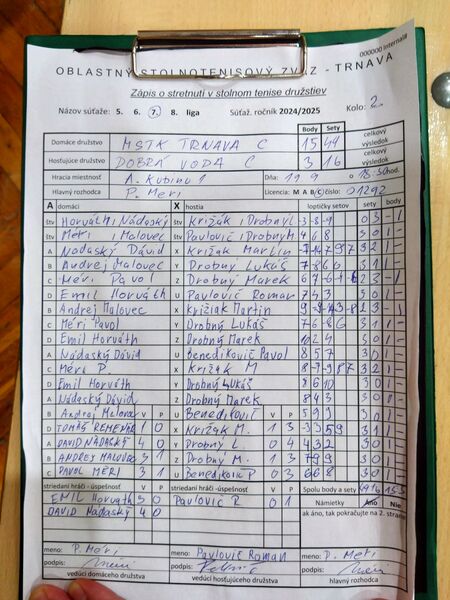 000000 Internali
OBLASTNÝ STOLNOTENISOVÝ ZVÄZ - TRNAVA
Zápis o stretnutí v stolnom tenise družstiev
Názov súťaže: 5. 6. 7. 8. liga Súťaž. ročník 2024/2025 Kolo: 2.
Body Sety
Domáce družstvo MSTK TRNAVA C 15 44 celkový výsledok
Hosťujúce družstvo DOBRÁ VODA C 3 16 celkový výsledok
Hracia miestnosť A. Kubinu 1 Dňa: 19.9 o 18:30 hod.
Hlavný rozhodca P. MERI Licencia: M A B C číslo: 01292
A domáci X hostia loptičky setov sety body
štv Horváth i Nádaský štv Križák i Drobný L. -3 -8 -9 0 3 - 1
štv Méri i Malovec štv Pavlovič i Drobný M. 4 6 8 3 0 1 -
A Nádaský Dávid X Križák Martin
B Andrej Malovec Y Drobný Lukáš 7 8 6 3 0 1 -
C Méri Pavol Z Drobný Marek 2 3 - 1
D Emil Horváth U Pavlovič Roman 7 4 3 3 0 1 -
B Andrej Malovec X Križiak Martin
C Méri Pavol Y Drobný Lukáš 7 6 -8 6 3 1 1 -
D Emil Horváth Z Drobný Marek 10 2 4 3 0 1 -
A Nádaský Dávid U Benedikovič Pavol 8 5 7 3 0 1 -
C Méri P. X Križák M 3 2 1 -
D Emil Horváth Y Drobný Lukáš 8 6 10 3 0 1 -
A Nádaský Dávid Z Drobný Marek 8 4 3 3 0 1 -
B Andrej Malovec V P U Benedikovič V P 5 9 9 3 0 1 -
D TOMÁŠ REMENÁR 1 0 X Križák M. 1 3 3 1 1 -
A DAVID NÁDASKÝ 4 0 Y Drobný L. 0 4 4 3 2 3 0 1 -
B ANDREJ MALOVEC 3 1 Z Drobný M. 1 3 7 9 9 3 0 1 -
C PAVOL MÉRI 3 1 U Benedikovič P 0 3 6 6 8 3 0 1 -
striedaní hráči -úspešnosť striedaní hráči - úspešnosť Spolu body a sety 44 16 15 3
EMIL Horváth 3 0 Pavlovič R 0 1 Námietky Áno Nie
DAVID Nádaský 4 0 ak áno, tak pokračujte na 2. strane
meno: P. Méri meno: Pavlovič Roman meno: P. Méri
podpis: podpis: podpis:
vedúci domáceho družstva vedúci hosťujúceho družstva hlavný rozhodca